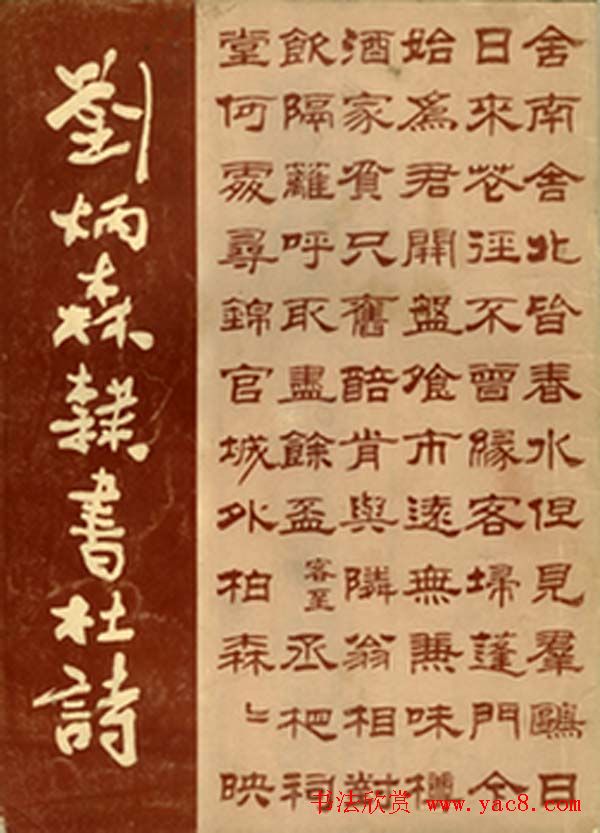 劉炳森隸書杜詩
舍南舍北皆春水但見羣鷗日
日來花徑不曾緣客埽蓬門今
始為君開盤飧市遠無兼味樽
酒家貧只舊醅肯與隣翁相對
飲隔籬呼取盡餘盃 客至 丞相祠
堂何處尋錦官城外柏森〻映
书法欣赏 www.yac8.com